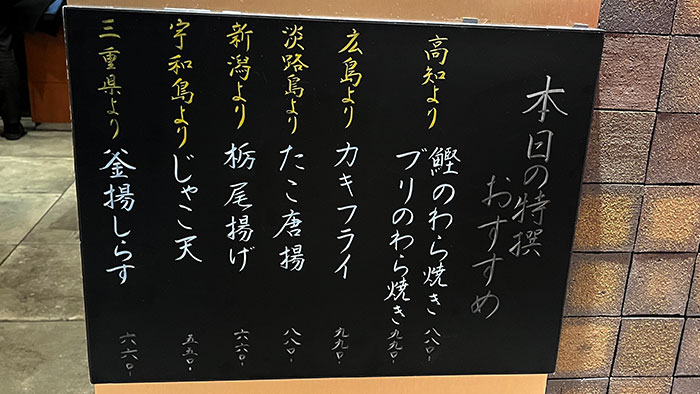 本日の特撰
おすすめ
高知より
鰹のわら焼き 八八〇-
ブリのわら焼き 九九〇-
広島より カキフライ 九九〇-
淡路島より たこ唐揚 八八〇-
新潟より 栃尾揚げ 六六〇-
宇和島より じゃこ天 五五〇-
三重県より 釜揚しらす 六六〇-